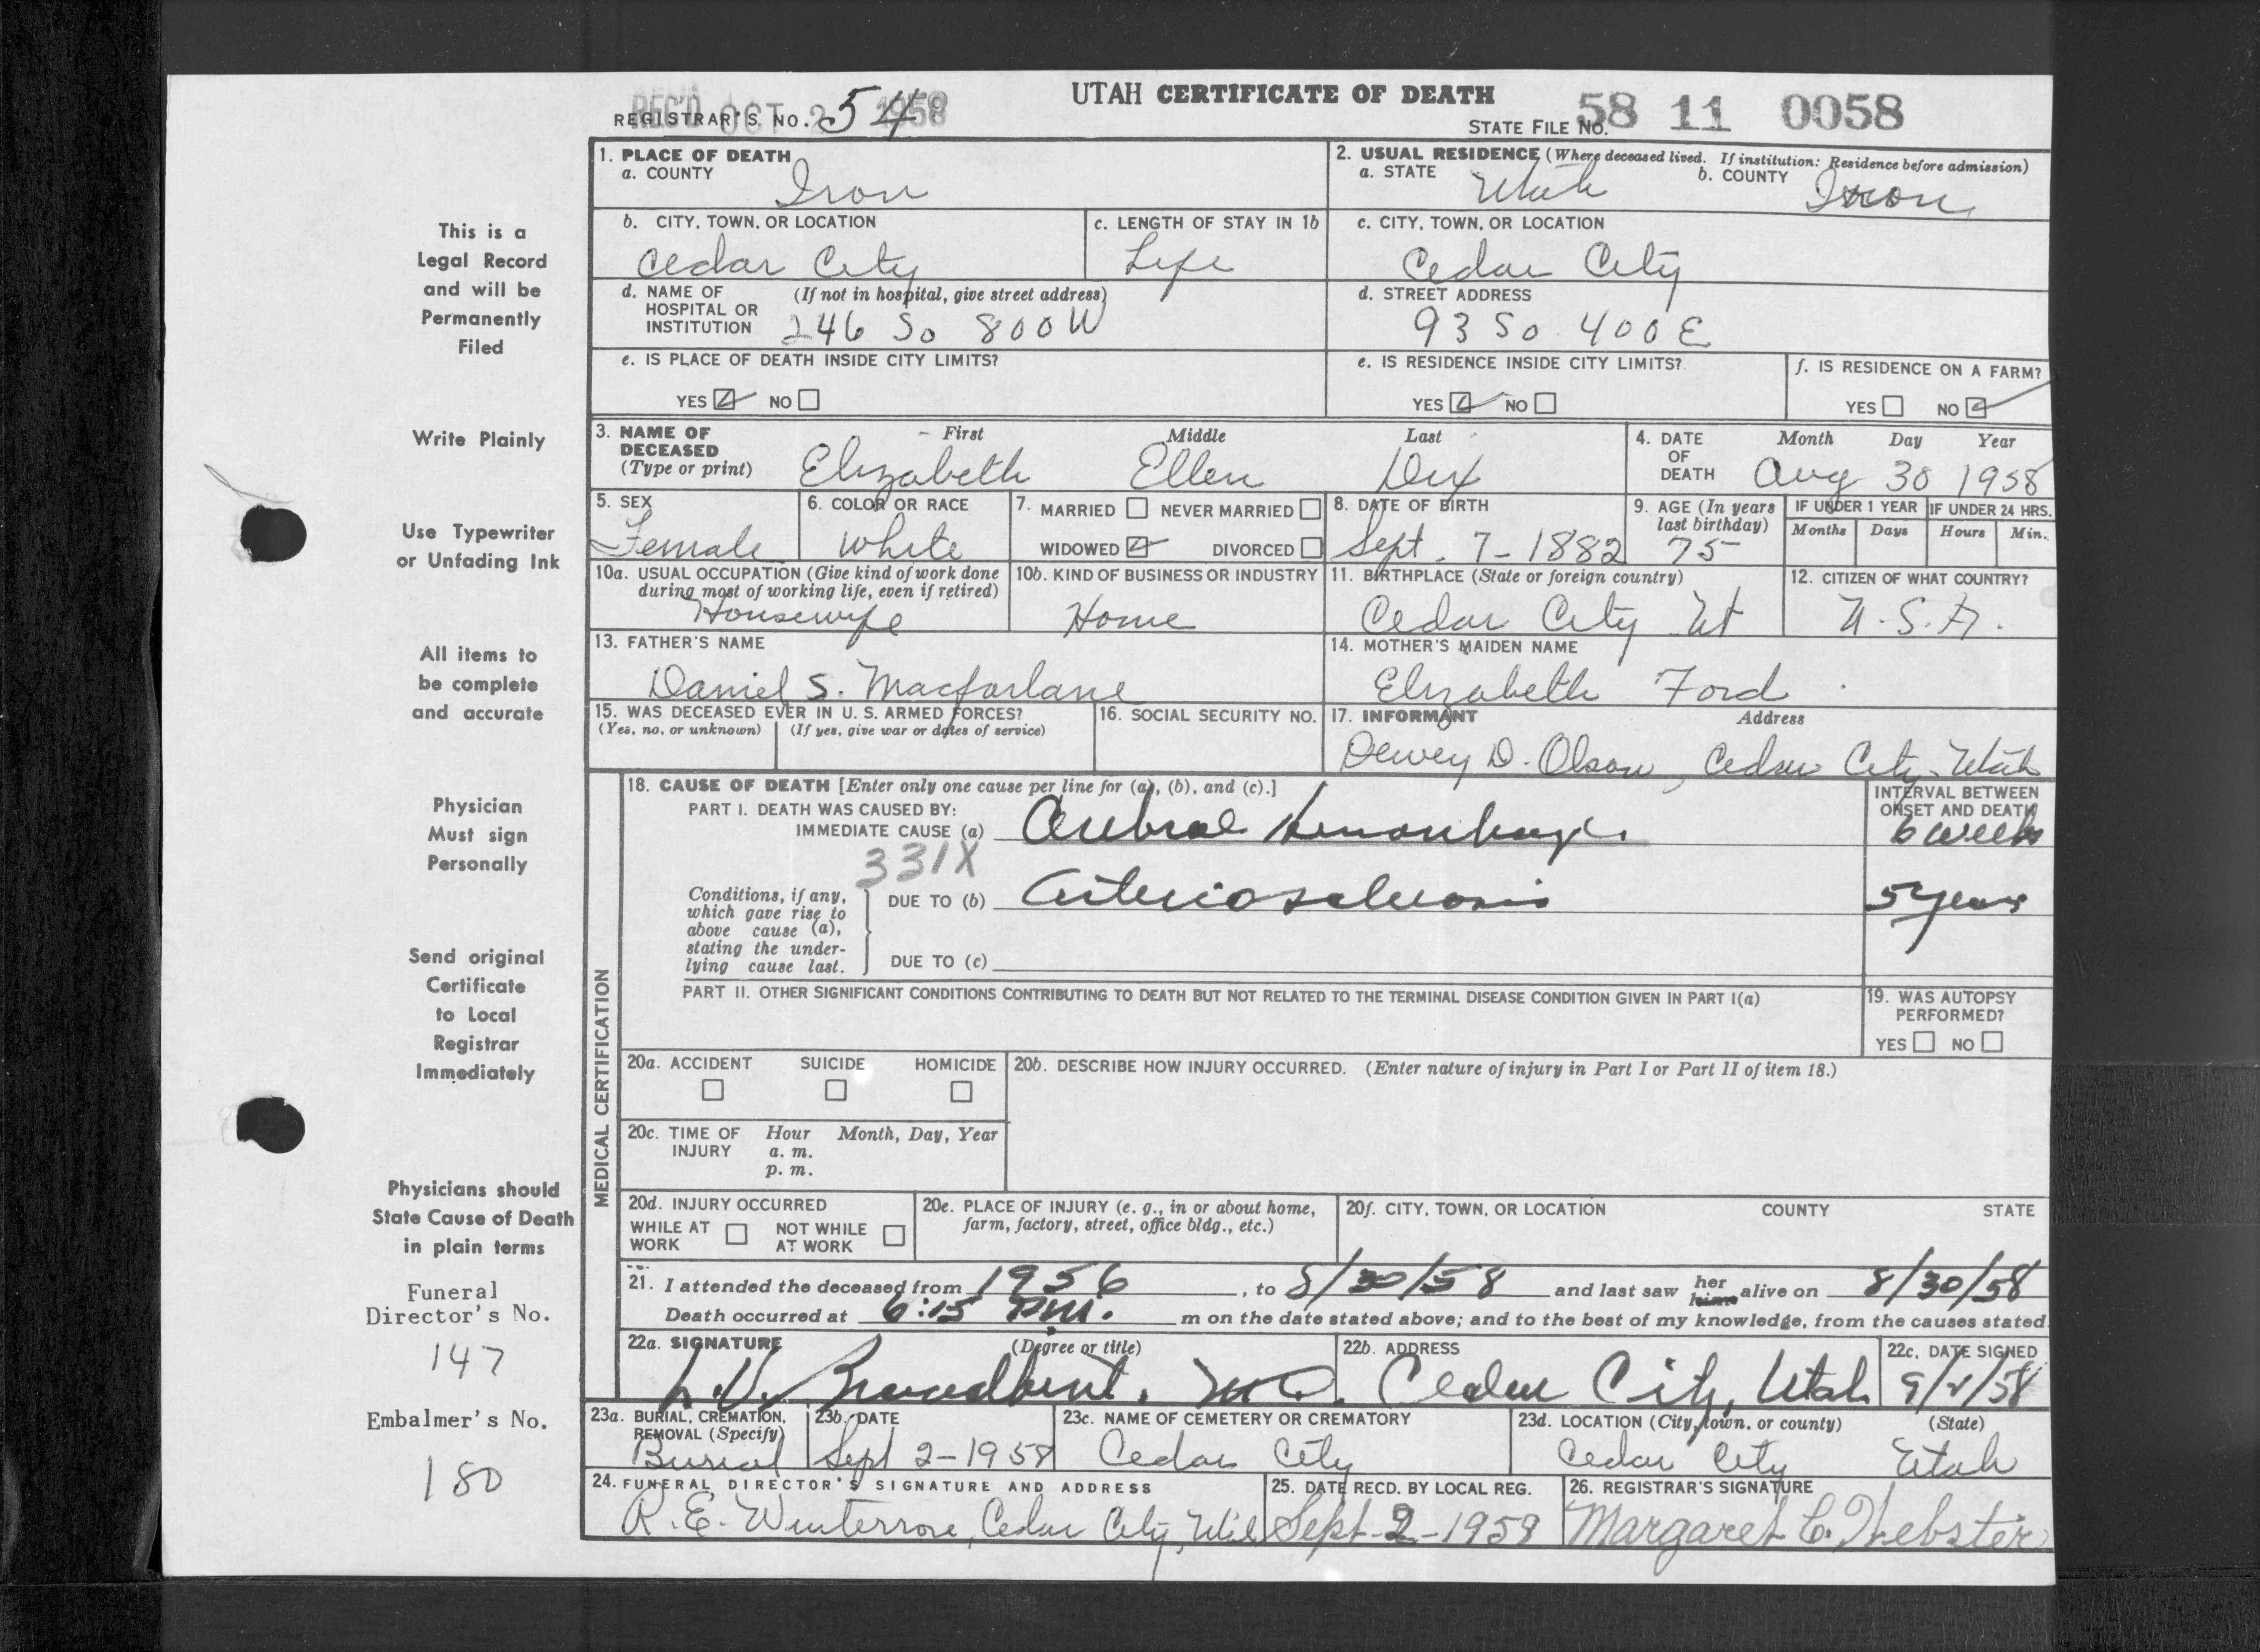 UTAH CERTIFICATE OF DEATH
REC'D OCT 2 1958
REGISTRAR'S NO. 54
STATE FILE NO. 58 11 0058
This is a
Legal Record
and will be
Permanently
Filed
Write Plainly
Use Typewriter
or Unfading Ink
All items to
be complete
and accurate
Physician
Must sign
Personally
Send original
Certificate
to Local
Registrar
Immediately
Physicians should
State Cause of Death
in plain terms
Funeral
Director's No.
147
Embalmer's No.
180
1. PLACE OF DEATH
a. COUNTY Iron
2. USUAL RESIDENCE (Where deceased lived. If institution: Residence before admission)
a. STATE Utah b. COUNTY Iron
b. CITY, TOWN, OR LOCATION
Cedar City
c. LENGTH OF STAY IN 1b
Life
c. CITY, TOWN, OR LOCATION
Cedar City
d. NAME OF (If not in hospital, give street address)
HOSPITAL OR
INSTITUTION 246 So 800 W
d. STREET ADDRESS
93 So 400 E
e. IS PLACE OF DEATH INSIDE CITY LIMITS?
YES NO
e. IS RESIDENCE INSIDE CITY LIMITS?
YES NO
f. IS RESIDENCE ON A FARM?
YES NO
3. NAME OF First Middle Last
DECEASED
(Type or print) Elizabeth Ellen Dix
4. DATE Month Day Year
OF
DEATH Aug 30 1958
5. SEX
Female
6. COLOR OR RACE
White
7. MARRIED NEVER MARRIED
WIDOWED DIVORCED
8. DATE OF BIRTH
Sept. 7-1882
9. AGE (In years
last birthday)
75
IF UNDER 1 YEAR IF UNDER 24 HRS.
Months Days Hours Min.
10a. USUAL OCCUPATION (Give kind of work done
during most of working life, even if retired)
Housewife
10b. KIND OF BUSINESS OR INDUSTRY
Home
11. BIRTHPLACE (State or foreign country)
Cedar City Ut
12. CITIZEN OF WHAT COUNTRY?
U.S.A.
13. FATHER'S NAME
Daniel S. Macfarlane
14. MOTHER'S MAIDEN NAME
Elizabeth Ford
15. WAS DECEASED EVER IN U. S. ARMED FORCES?
(Yes, no, or unknown) (If yes, give war or dates of service)
16. SOCIAL SECURITY NO.
17. INFORMANT Address
Dewey D. Olson, Cedar City, Utah
MEDICAL CERTIFICATION
18. CAUSE OF DEATH [Enter only one cause per line for (a), (b), and (c).]
PART I. DEATH WAS CAUSED BY:
IMMEDIATE CAUSE (a) Cerebral Hemorrhage
331X
INTERVAL BETWEEN
ONSET AND DEATH
6 weeks
Conditions, if any,
which gave rise to
above cause (a),
stating the under-
lying cause last.
DUE TO (b) Arteriosclerosis
5 years
DUE TO (c)
PART II. OTHER SIGNIFICANT CONDITIONS CONTRIBUTING TO DEATH BUT NOT RELATED TO THE TERMINAL DISEASE CONDITION GIVEN IN PART I(a)
19. WAS AUTOPSY
PERFORMED?
YES NO
20a. ACCIDENT SUICIDE HOMICIDE
20b. DESCRIBE HOW INJURY OCCURRED. (Enter nature of injury in Part I or Part II of item 18.)
20c. TIME OF Hour Month, Day, Year
INJURY a. m.
p. m.
20d. INJURY OCCURRED
WHILE AT NOT WHILE
WORK AT WORK
20e. PLACE OF INJURY (e. g., in or about home,
farm, factory, street, office bldg., etc.)
20f. CITY, TOWN, OR LOCATION COUNTY STATE
21. I attended the deceased from 1956, to 8/30/58 and last saw her him alive on 8/30/58
Death occurred at 6:15 P.M. m on the date stated above; and to the best of my knowledge, from the causes stated
22a. SIGNATURE (Degree or title)
L. V. Broadbent, M.D.
22b. ADDRESS
Cedar City, Utah
22c. DATE SIGNED
9/2/58
23a. BURIAL, CREMATION,
REMOVAL (Specify)
Burial
23b. DATE
Sept 2-1958
23c. NAME OF CEMETERY OR CREMATORY
Cedar City
23d. LOCATION (City, town, or county) (State)
Cedar City Utah
24. FUNERAL DIRECTOR'S SIGNATURE AND ADDRESS
R. E. Winterrose, Cedar City, Utah
25. DATE RECD. BY LOCAL REG.
Sept-2-1958
26. REGISTRAR'S SIGNATURE
Margaret C. Webster